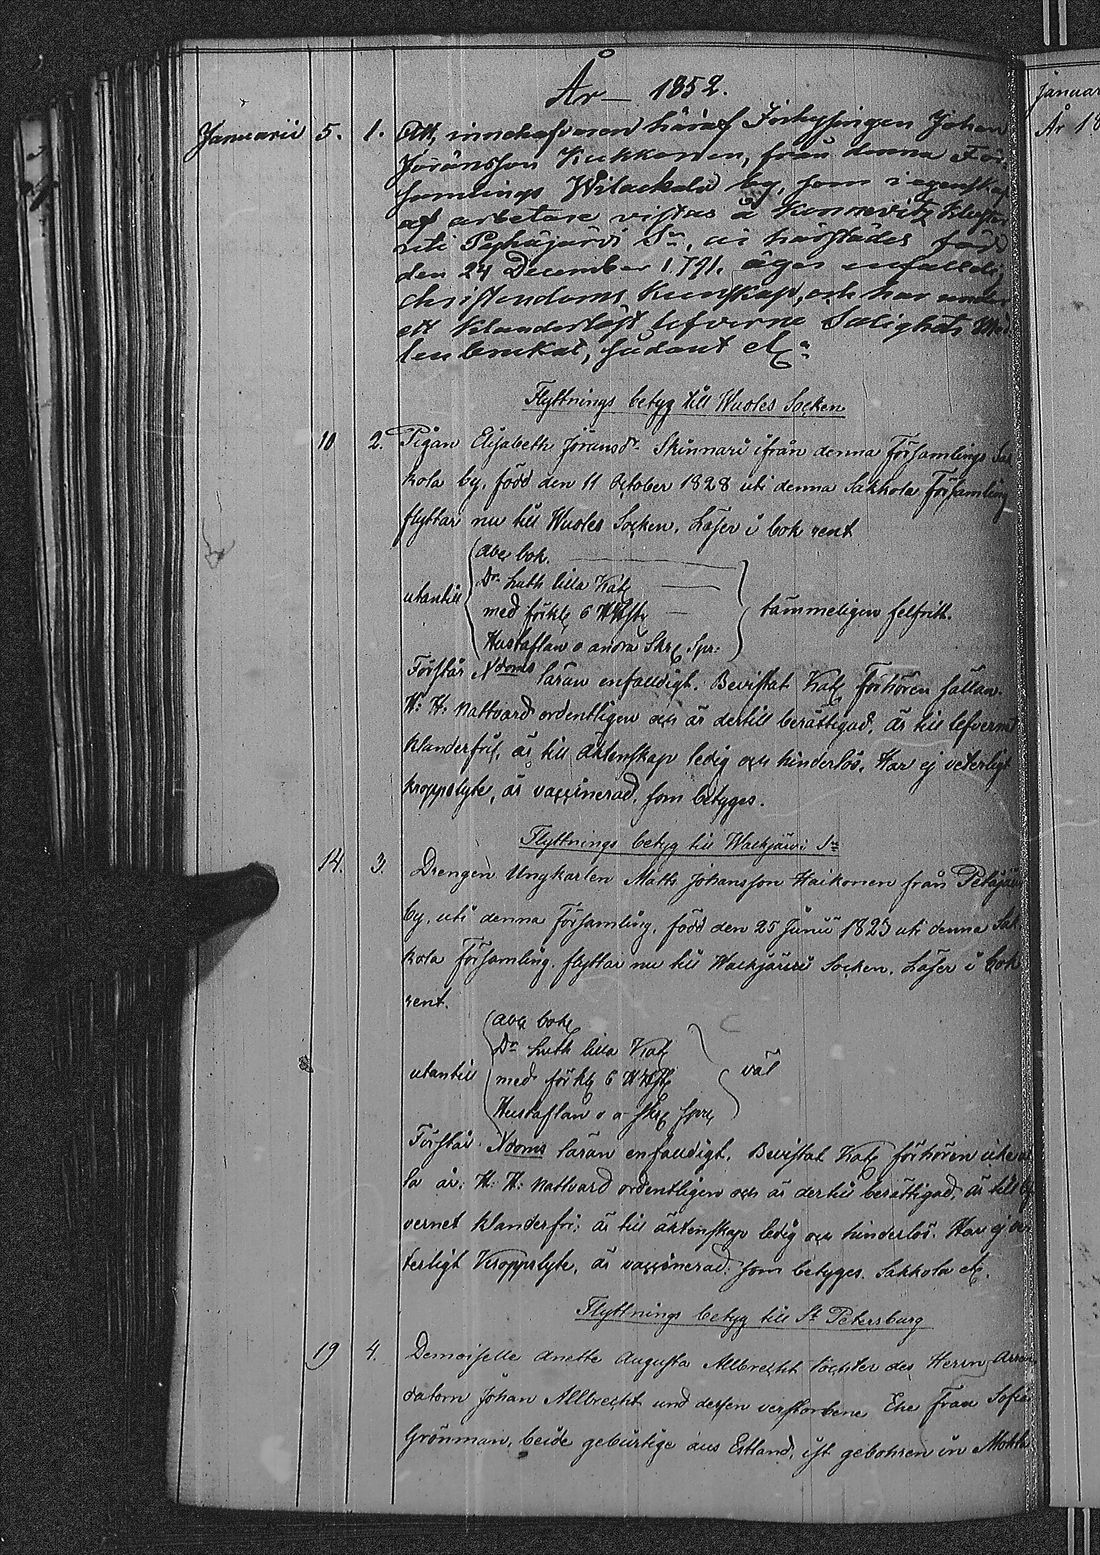 År 1852.
Januarii 5. 1. Att innehafvaren häraf Inhysingen Johan
Jöransson Kukkonen, från denna För-
samlings Wilackala by, som i egenskap
af arbetare vistas å
uti Pyhäjärvi Sn, är härstädes född
den 24 December 1791. äger enfaldig
christendoms kunskap, och har under
ett klanderlöst lefverne Salighets Med-
len brukat, sådant etc.
Flyttnings betyg till Wuoles Socken
10 2. Pigan Elisabeth Jöransdr Skinnari ifrån denna Församlings Sak-
kola by, född den 11 October 1828 uti denna Sakkola Församling
flyttar nu till Wuoles Socken. Läser i bok rent
abc bok.
Dr. Luth lilla Kat
utantill med förkl 6 H Hftr tämmeligen felfritt.
Hustaflan o andra Skr. Spr.
Förstår Ndoms läran enfalldigt. Bevistat Kat förhören sällan.
H. H. Nattvard ordentligen och är dertill berättigad, är till lefvernet
klanderfri, är till äktenskap ledig och hinderlös. Har ej veterligt
kroppslyte, är vaxxinerad, som betyges.
Flyttnings betyg till Walkjärvi Sn
14. 3. Drengen Ungkarlen Matts Johansson Haikonen från Petäjär
by, uti denna Församling, född den 25 Junii 1823 uti denna Sak-
kola Församling, flyttar nu till Walkjärvi Socken. Läser i bok
rent.
abc bok
Dr Luth lilla Kat
utantill med förkl 6 H Hft väl
Hustaflan o a Skr Spr
Förstår Ndoms läran enfalldigt. Bevistat Kat förhören
la år. H. H. Nattvard ordentligen och är dertill berättigad, är till lef-
vernet klanderfri, är till äktenskap ledig och hinderlös. Har ej ve-
terligt Kroppslyte, är vaxxinerad. som betyges. Sakkola etc.
Flyttnings betyg till St Petersburg
19 4. Demoiselle Anette Augusta Allbrecht tochter des Herrn Arren-
datorn Johan Allbrecht und dessen verstorbene Ehe Frau Sofia
Grönman, beide gebürtige aus Estland, ist gebohren in
Januar
År 18